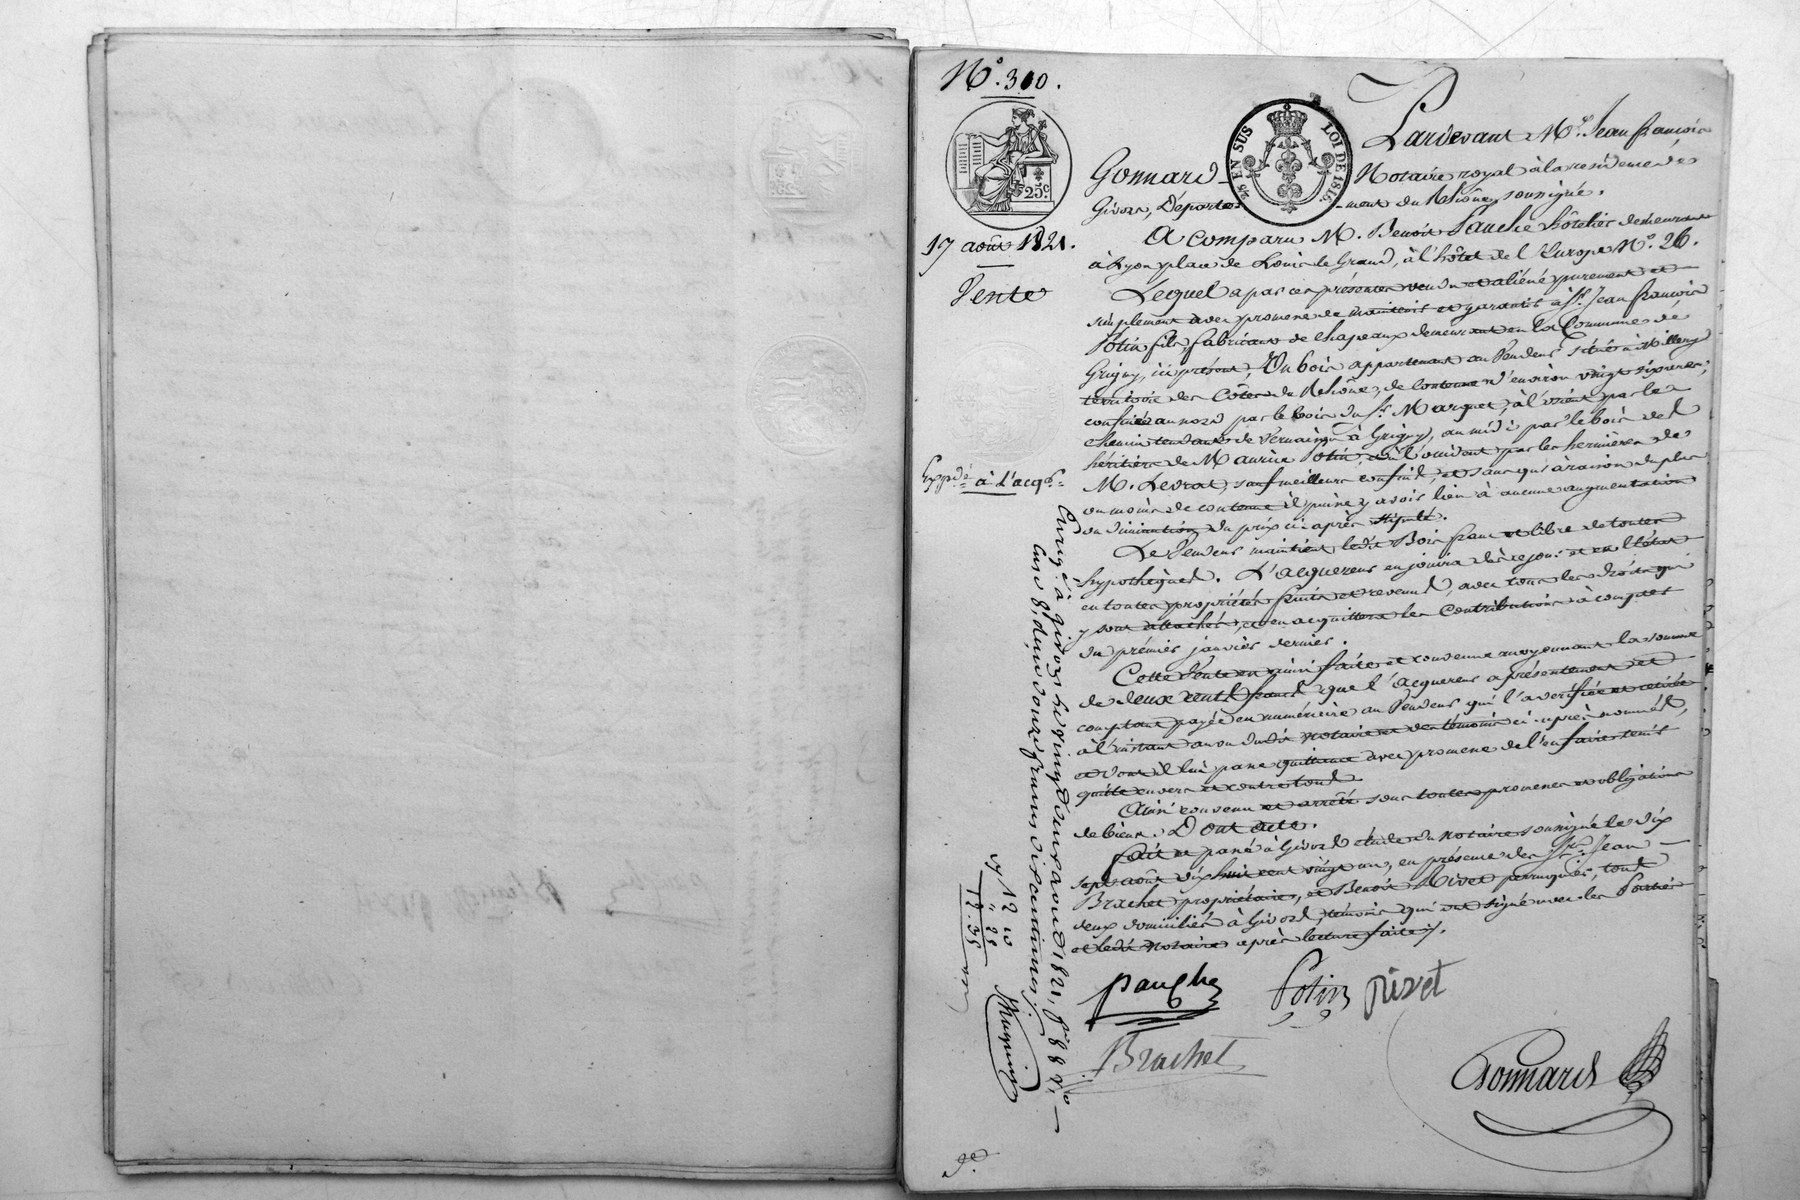 N.° 310.
25 EN SUS
LOI DE 1816.
25.c
17 août 1821.
Vente
Expp.dé à l'acq.r
Pardevant M.e Jean françois
Gonnard Notaire royal à la résidence de
Givors, Département du Rhône, soussigné.
A comparu M. Benoit Pauche hôtelier demeurant
à Lyon place de Louis le Grand, à l'hôtel de l'Europe N.° 26.
Lequel a par ces présentes vendu et aliéné purement et
simplement avec promesse de maintenir et garantir à S.r Jean françois
Potin fils, fabricant de chapeaux demeurant en la Commune de
Grigny, ici présent, Un bois appartenant au Vendeur situé à
territoire des Côtes de Rhône, de contenue d'environ vingt six ares;
confiné au nord par le bois du S.r Marquet, à l'orient par le
chemin tendant de Vernaison à Grigny, au midi par le bois des
héritiers de Maurice Potin, et à l'occident par les hermières de
M. Levrat, sauf meilleurs confins, et sans qu'à raison du plus
ou moins de contenue il puisse y avoir lieu à aucune augmentation
ou diminution du prix ci-après stipulé.
Le Vendeur maintient ledit Bois franc et libre de toutes
hypothèques. L'acquereur en jouira dès ce jour et en l'état
en toutes propriétés fruits et revenus, avec tous les droits qui
y sont attachés, et en acquittera les Contributions à compter
du premier janvier dernier.
Cette Vente est ainsi faite et convenue moyennant la somme
de deux cents francs que l'acquereur a présentement et
comptant payée en numéraire au Vendeur qui l'a vérifiée et retirée
à l'instant au vu dudit notaire et des témoins ci-après nommés,
et dont il lui passe quittance avec promesse de l'en faire tenir
quitte envers et contre tous.
Ainsi convenu et arrêté sous toutes promesses et obligations
de biens. Dont acte.
fait et passé à Givors étude du notaire soussigné le dix
sept août dix huit cent vingt un, en présence des S.rs Jean
Brachet propriétaire, et Benoit Rivet perruquier, tous
deux domiciliés à Givors, témoins qui ont signé avec les Parties
et ledit notaire après lecture faite.
Pauche Potin Rivet
Brachet
Gonnard
Enreg.é à givors le vingt deux aout 1821, f.o 88 v.o
case 8, reçu douze francs dix centimes
12 10
25
12.35